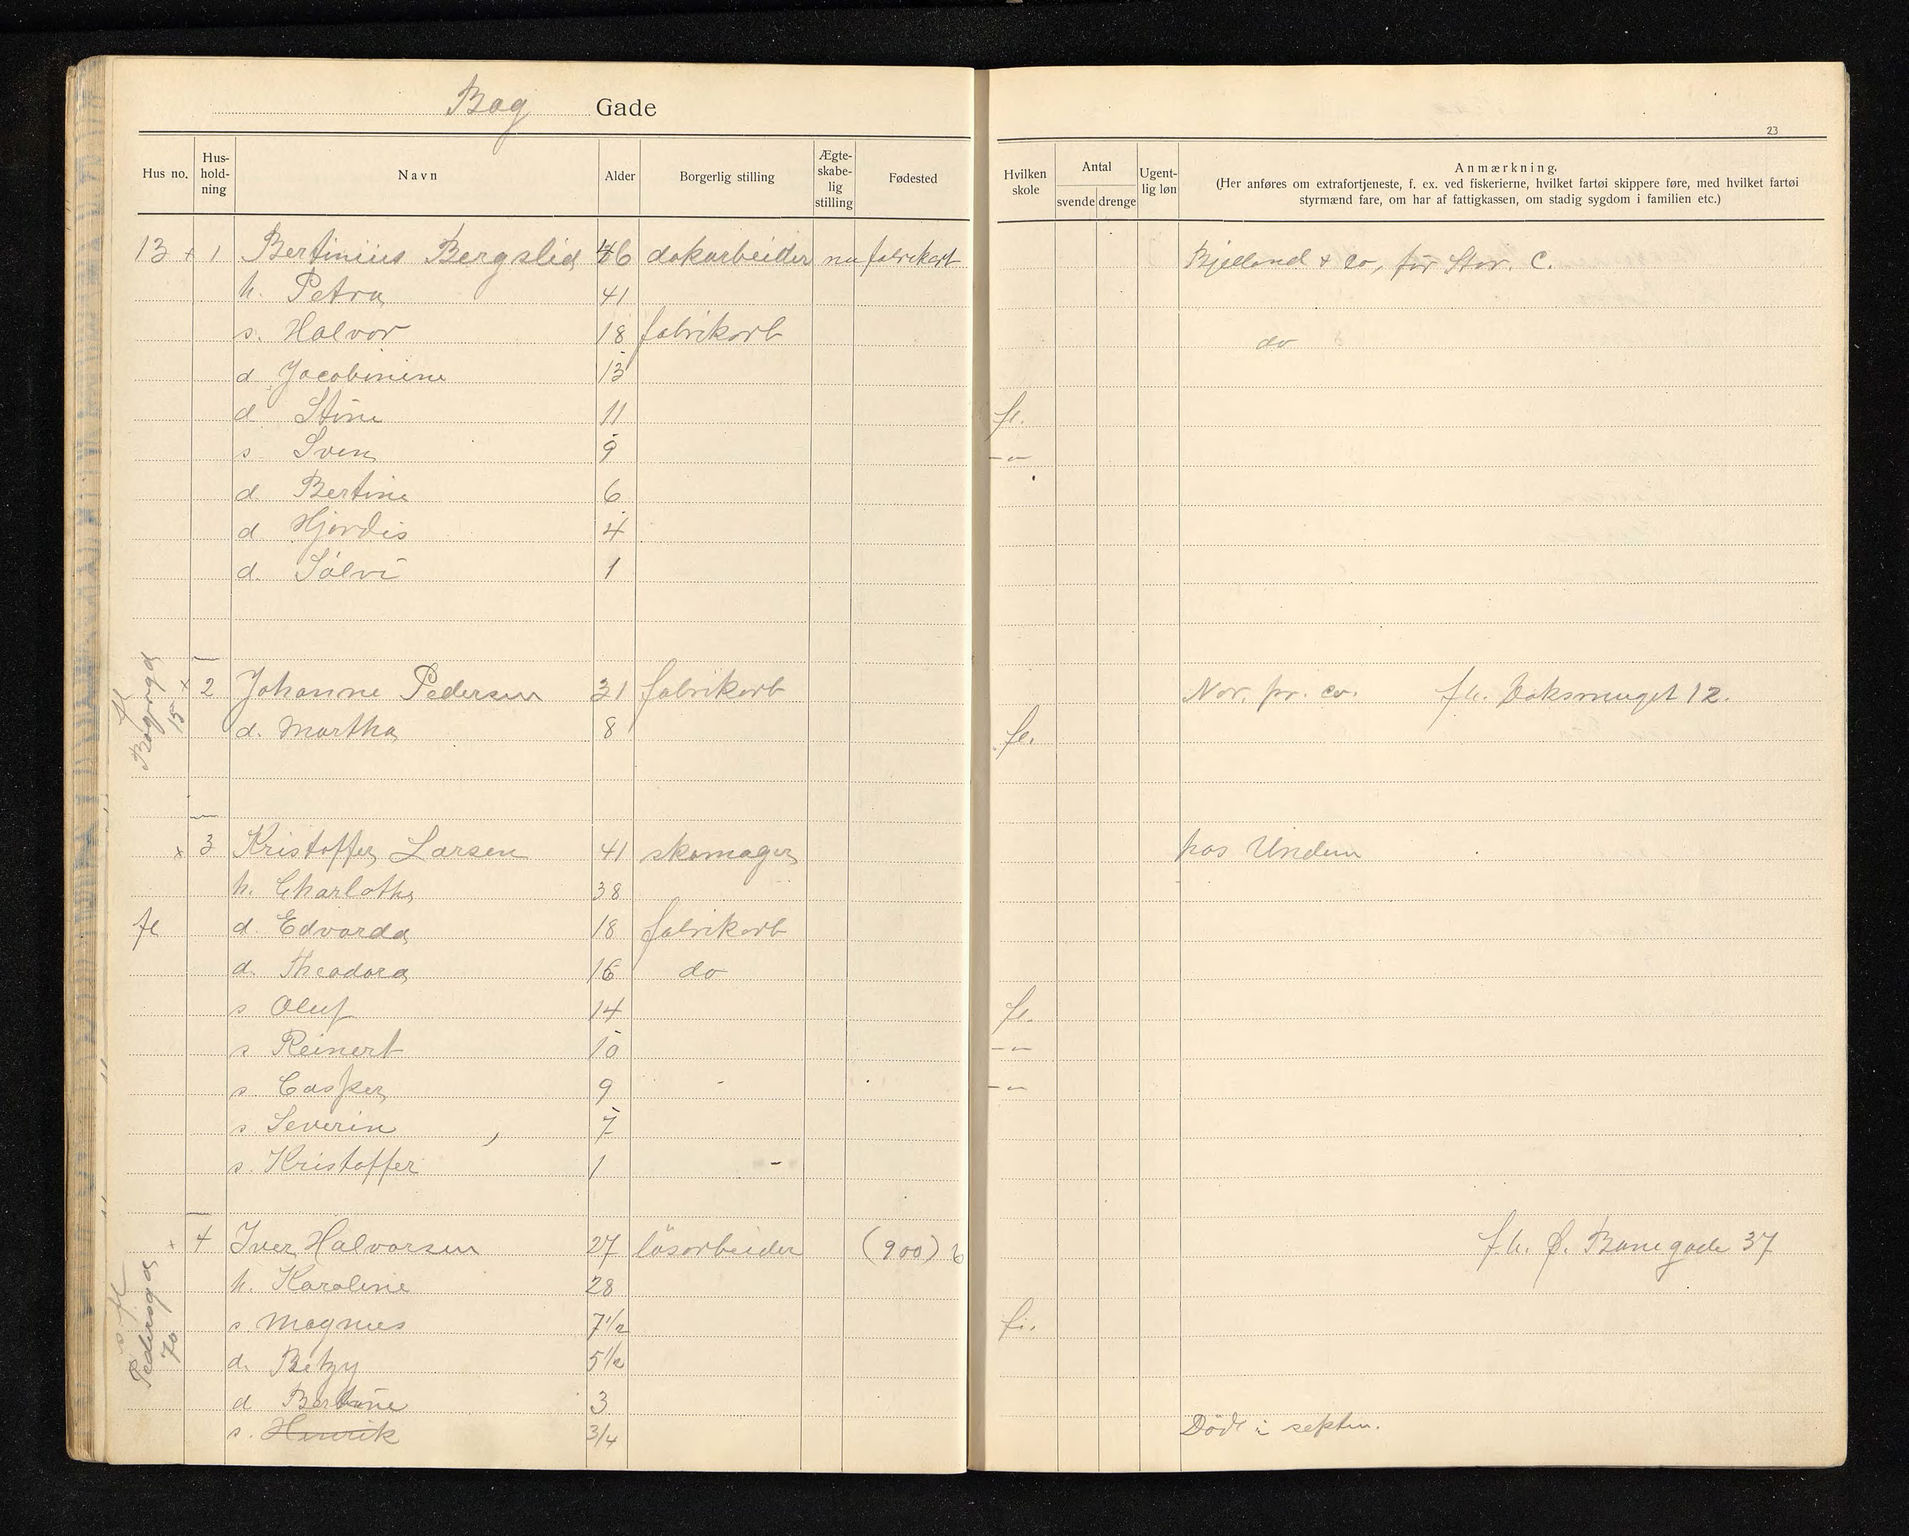 Bag Gade
23
Hus no. Hus-holdning Navn Alder Borgerlig stilling Ægte-skabe-lig stilling Fødested Hvilken skole Antal svende drenge Ugent-lig løn Anmærkning.
(Her anføres om extrafortjeneste, f. ex. ved fiskerierne, hvilket fartøi skippere føre, med hvilket fartøi
styrmænd fare, om har af fattigkassen, om stadig sygdom i familien etc.)
13 + 1 Bertinius Bergslid 46 dokarbeider nu fabrikarb Bjelland & co, før Stav. C.
h. Petra 41
s. Halvor 18 fabrikarb do
d Jacobinine 13
d Stine 11 fl.
s. Sven 9 -"-
d. Bertine 6
d Hjørdis 4
d. Sølvi 1
fl Baggd 15
+ 2 Johanne Pedersen 31 fabrikarb Nor. pr. co. f.h. Doksmuget 12.
d. Martha 8 fl.
x 3 Kristoffer Larsen 41 skomager hos Undem
h. Charlotte 38
fl d. Edvarda 18 fabrikarb
d. Theodora 16 do
s Oluf 14 fl.
s Reinert 10 -"-
s. Casper 9 -"-
s. Severin 7
s. Kristoffer 1
x 4 Iver Halvorsen 27 løsarbeider (900) f.h. Ø. Banegade 37
h. Karoline 28
s. Magnus 7 1/2 fi.
fl Pedersgd 70
d. Betzy 5 1/2
d Bertine 3
s. Henrik 3/4 Død i septem.